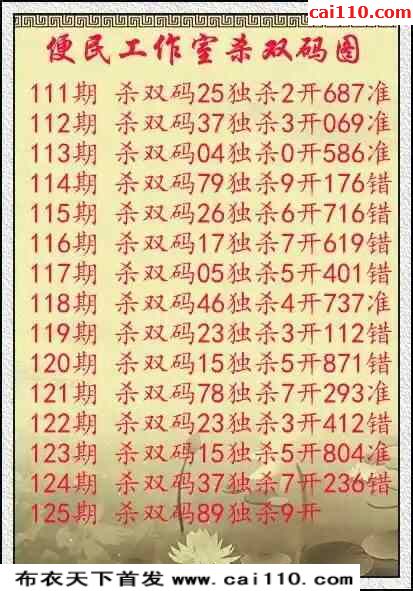 cai110.com
便民工作室杀双码图
111期 杀双码25独杀2开687准
112期 杀双码37独杀3开069准
113期 杀双码04独杀0开586准
114期 杀双码79独杀9开176错
115期 杀双码26独杀6开716错
116期 杀双码17独杀7开619错
117期 杀双码05独杀5开401错
118期 杀双码46独杀4开737准
119期 杀双码23独杀3开112错
120期 杀双码15独杀5开871错
121期 杀双码78独杀7开293准
122期 杀双码23独杀3开412错
123期 杀双码15独杀5开804准
124期 杀双码37独杀7开236错
125期 杀双码89独杀9开
布衣天下首发 www.cai110.com